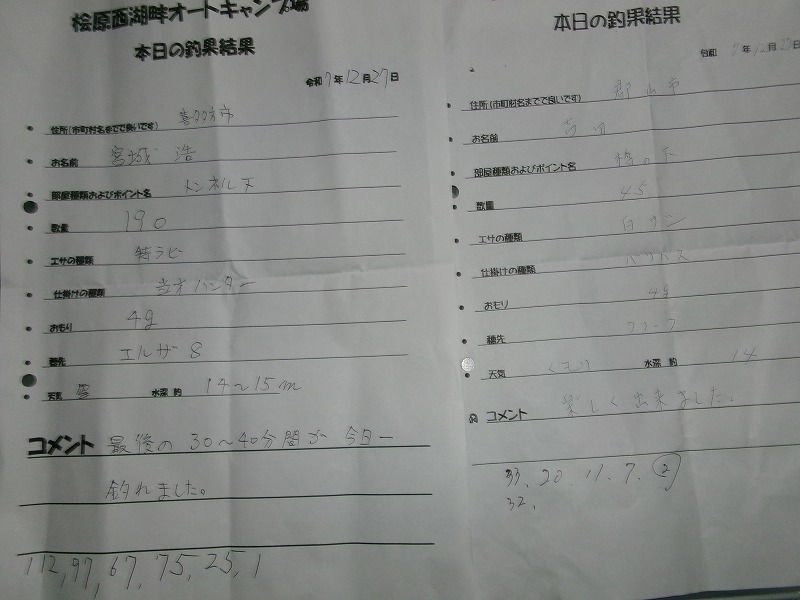 桧原西湖畔オートキャンプ場
本日の釣果結果
令和7年12月27日
住所(市町村名までで良いです) 喜多方市
お名前 宮城 浩
部屋種類およびポイント名 トンネル下
数量 190
エサの種類 特ラビ
仕掛けの種類 ハンター
おもり 4g
穂先 エルザ 8
天気 雪 水深 約 14〜15m
コメント 最後の 30〜40分間が 今日一
釣れました。
112, 97, 67, 75, 25, 1
本日の釣果結果
令和 7年12月27日
住所(市町村名までで良いです) 郡山市
お名前
部屋種類およびポイント名 橋の下
数量 45
エサの種類 白サシ
仕掛けの種類
おもり 4g
穂先
天気 くもり 水深 約 14
コメント 楽しく出来ました。
33. 20. 11. 7. ②
32.